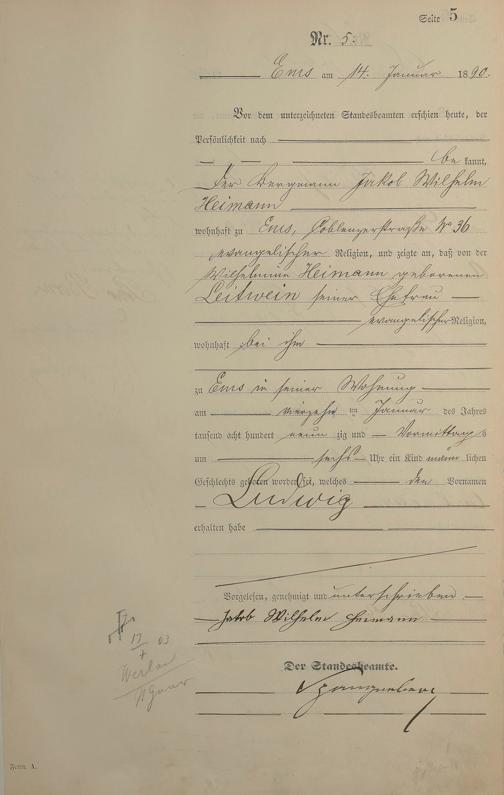 Seite 5
Nr. 5.
Ems am 14. Januar 1890.
Vor dem unterzeichneten Standesbeamten erschien heute, der
Persönlichkeit nach
be kannt,
der Bergmann Jakob Wilhelm
Heimann
wohnhaft zu Ems, Coblenzerstraße No 36
evangelischer Religion, und zeigte an, daß von der
Wilhelmine Heimann geborenen
Leitwein seiner Ehefrau
evangelischer Religion,
wohnhaft bei ihm
zu Ems in seiner Wohnung
am vierzehn ten Januar des Jahres
tausend acht hundert neun zig und Vormittag s
um sechs Uhr ein Kind männ lichen
Geschlechts geboren worden sei, welches den Vornamen
Ludwig
erhalten habe
Vorgelesen, genehmigt und unterschrieben
Jakob Wilhelm Heimann
Der Standesbeamte.
Form. A.